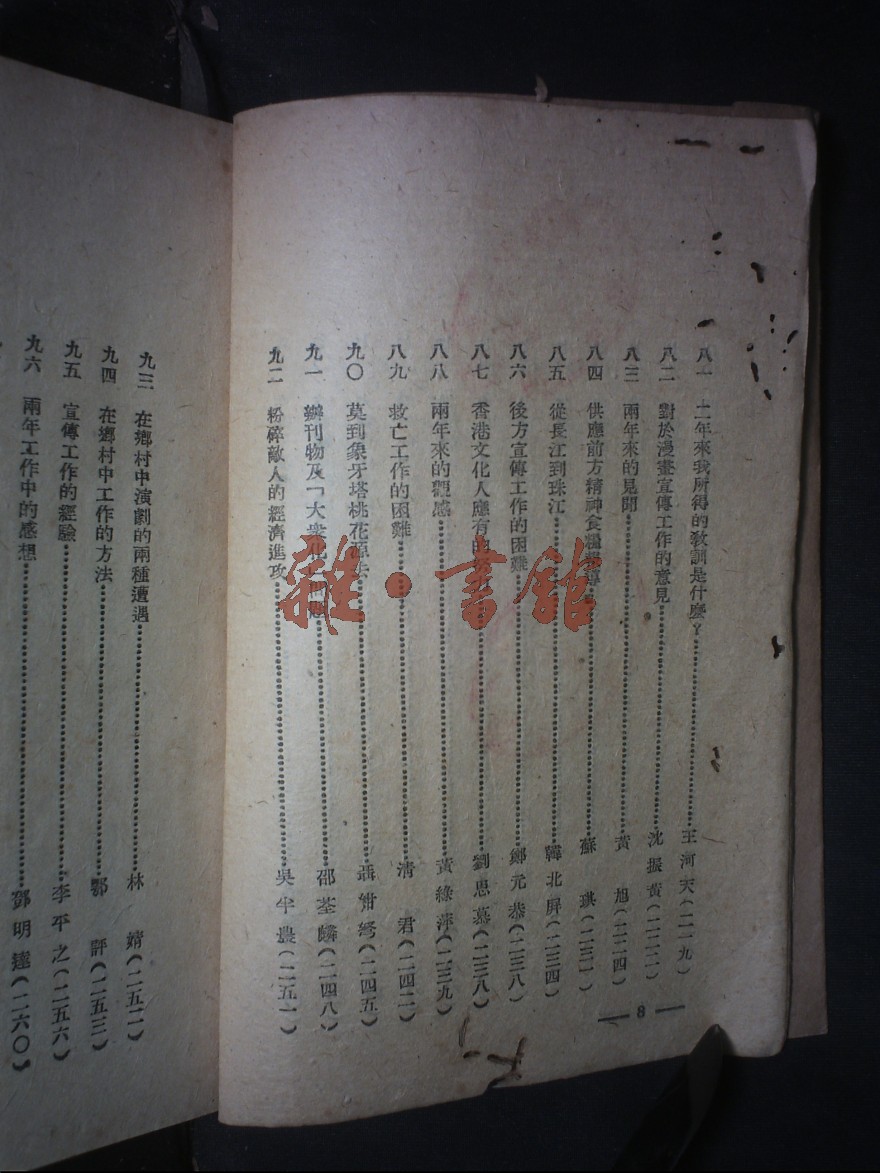 八一 二年來我所得的敎訓是什麼？……王河天(二一九)
八二 對於漫畫宣傳工作的意見……沈振黃(二二二)
八三 兩年來的見聞……黃 旭(二二四)
八四 供應前方精神食糧……蘇 琪(二三一)
八五 從長江到珠江……韓北屏(二三四)
八六 後方宣傳工作的困難……鄭元恭(二三八)
八七 香港文化人應有的努力……劉思慕(二三八)
八八 兩年來的觀感……黃綠萍(二三九)
八九 救亡工作的困難……清 君(二四二)
九〇 莫到象牙塔桃花源去……聶紺弩(二四五)
九一 辦刊物及「大衆化」問題……邵荃麟(二四八)
九二 粉碎敵人的經濟進攻……吳半農(二五一)
— 8 —
九三 在鄉村中演劇的兩種遭遇……林 婧(二五二)
九四 在鄉村中工作的方法……鄂 評(二五三)
九五 宣傳工作的經驗……李平之(二五六)
九六 兩年工作中的感想……鄧明達(二六〇)
雜·書館